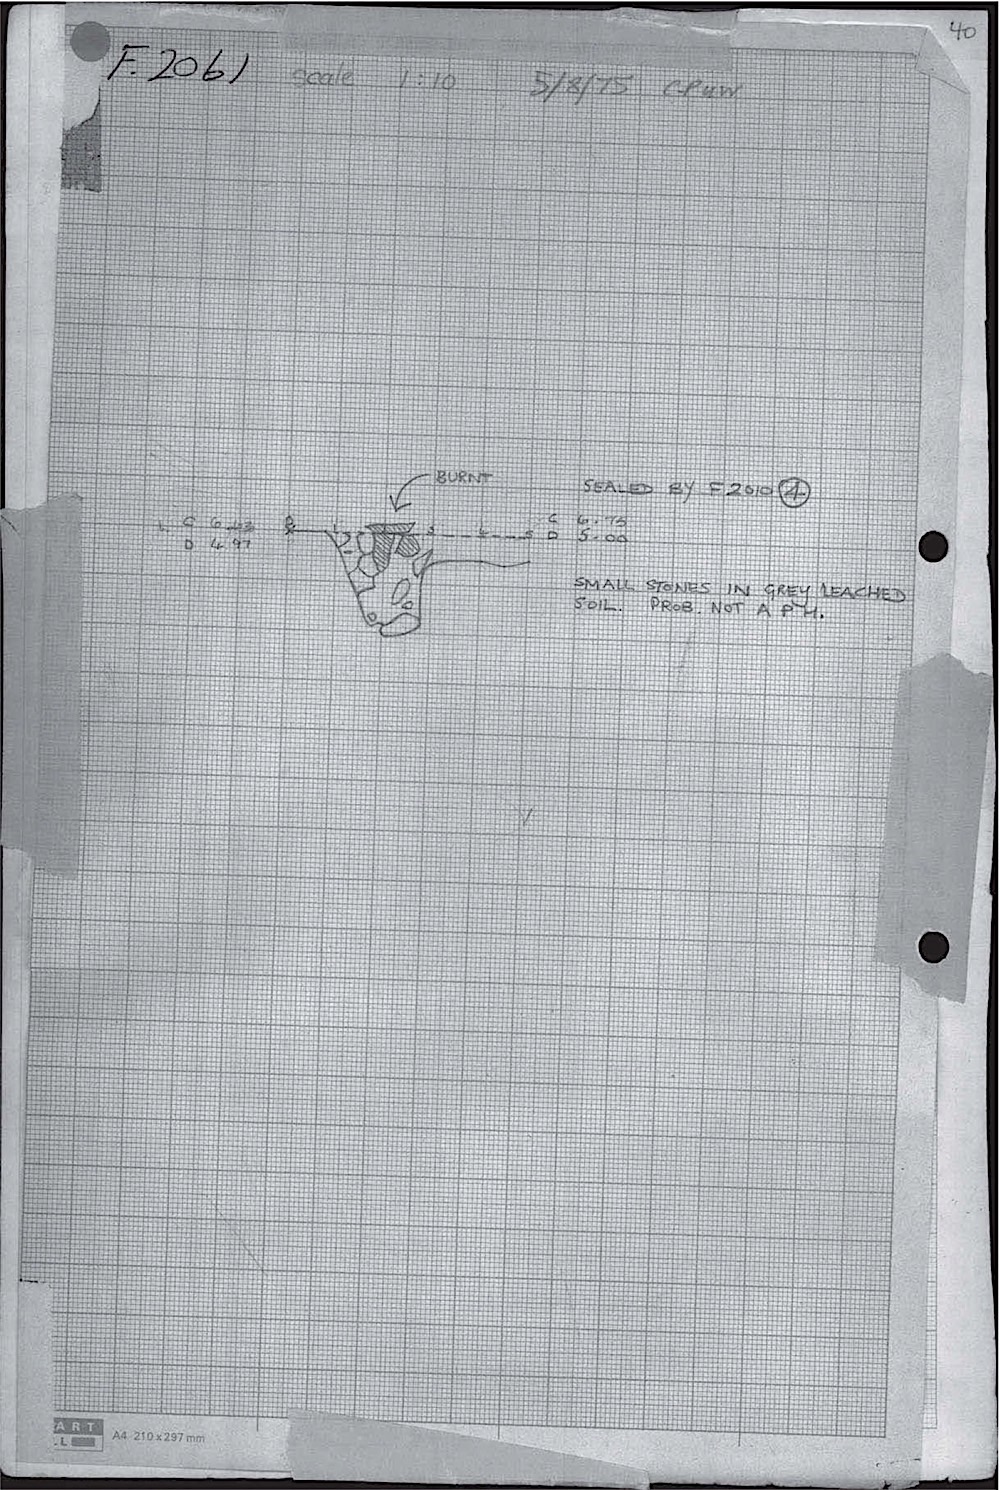 40
F.2061 scale 1:10 5/8/75
BURNT
SEALED BY F2010 4
C 6.75
D 5.00
D 4.97
SMALL STONES IN GREY LEACHED
SOIL. PROB. NOT A P.H.
ART
L
A4 210 x 297 mm